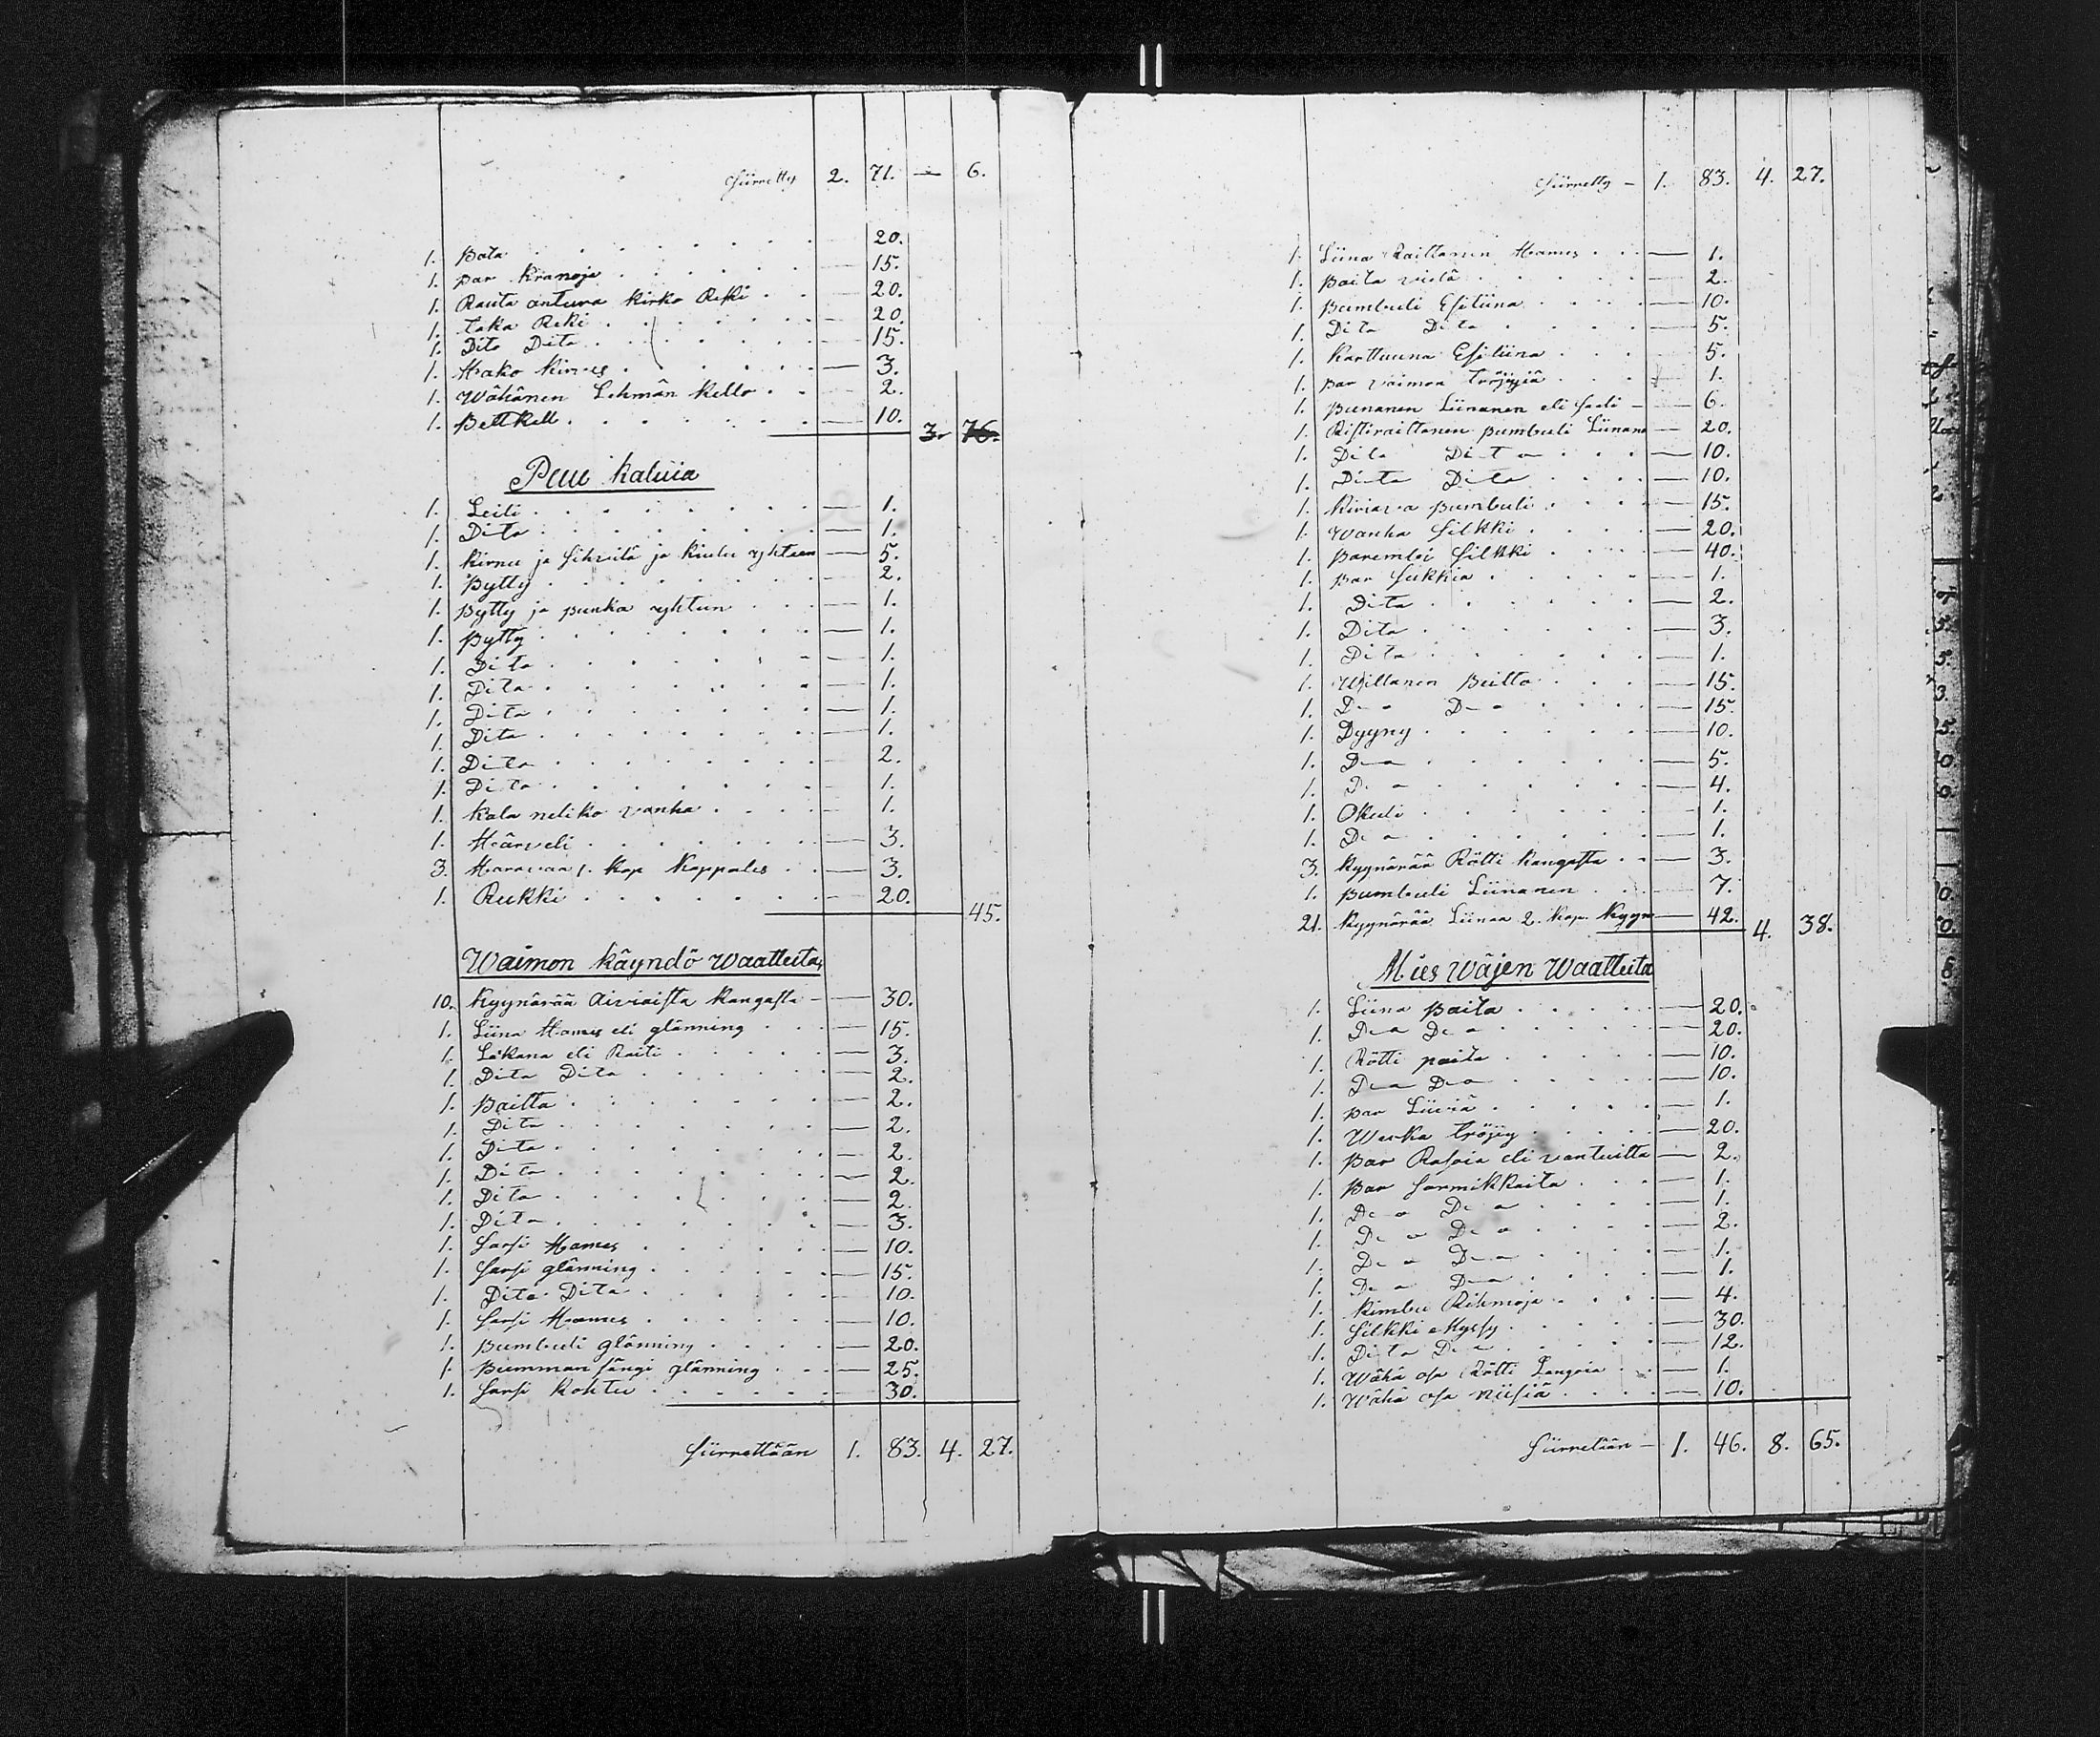 Siirretty 2. 71. — 6.
1. Pata . . . . 20.
1. par Kranoja . . . . 15.
1. Rauta antura Kirko Reki . . 20.
1. taka Reki . . . . 20.
1. Dito Dito . . . . 15.
1. Hako Kirves . . . . — 3.
1. Wähänen Lehmän Kello . . 2.
1. Beltkell . . . . — 10.
3. 76.
Puu kaluia
1. Leili . . . . — 1.
1. Dita . . . . — 1.
1. Kirnu ja Sihvilä ja Kiulu yhteen — 5.
1. Pytty . . . . — 2.
1. Pytty ja punka yhteen . . . — 1.
1. Pytty . . . . — 1.
1. Dita . . . . — 1.
1. Dita . . . . — 1.
1. Dita . . . . — 1.
1. Dita . . . . — 1.
1. Dita . . . . — 2.
1. Dita . . . . — 1.
1. Kala neliko vanha . . . . — 1.
1. Härveli . . . . — 3.
3. Haravaa 1. Kop Kappales . . — 3.
1. Rukki . . . . — 20.
45.
Waimon käyndö Waatteita
10. Kyynärää Aivinista Kangasta — 30.
1. Liina Hames eli glänning . . . — 15.
1. Lakana eli Raiti . . . . — 3.
1. Dita Dita . . . . — 2.
1. Paitta . . . . — 2.
1. Dita . . . . — 2.
1. Dita . . . . — 2.
1. Dita . . . . — 2.
1. Dita . . . . — 2.
1. Dita . . . . — 3.
1. Sarsi Hames . . . . — 10.
1. Sarsi glänning . . . . — 15.
1. Dita Dita . . . . — 10.
1. Sarsi Hames . . . . — 10.
1. Bumbuli glänning . . . . — 20.
1. Bumman sängi glänning . . — 25.
1. Sarsi Rohtu . . . . — 30.
Siirrettään 1. 83. 4. 27.
Siirretty — 1. 83. 4. 27.
1. Liina Raittanen Hames . . — 1.
1. Paita vielä . . . . — 2.
1. Bumbuli Esiliina . . . . — 10.
1. Dita Dita . . . . — 5.
1. Karttuuna Esiliina . . . — 5.
1. par vaimon tröijyiä . . . 1.
1. Punanen Liinanen eli saali — 6.
1. Ristiraittanen Bumbuli Liinane — 20.
1. Dita Dita . . . — 10.
1. Dita Dita . . . . — 10.
1. Kiriava Bumbuli . . . . — 15.
1. Wanha Silkki . . . . — 20.
1. Parembi Silkki . . . . — 40.
1. par Sukkia . . . . — 1.
1. Dita . . . . — 2.
1. Dita . . . . — 3.
1. Dita . . . . — 1.
1. Willanen Peitto . . . — 15.
1. D—o D—o . . . . — 15.
1. Dyyny . . . . — 10.
1. D—o . . . . — 5.
1. D—o . . . . — 4.
1. Okuli . . . . — 1.
1. D—o . . . . — 1.
3. Kyynärää Rötti Kangasta . . — 3.
1. Bumbuli Liinanen . . . — 7.
21. Kyynärää Liinaa 2. Kop. Kyyn — 42.
4. 38.
Mies Wäjen Waatteita
1. Liina Paita . . . . — 20.
1. D—o D—o . . . . — 20.
1. Rötti paita . . . . — 10.
1. D—o D—o . . . . — 10.
1. par Liiviä . . . . — 1.
1. Werka tröijy . . . . — 20.
1. par Rasoia eli vantuitta — 2.
1. par Sormikkaita . . . — 1.
1. D—o D—o . . . . — 1.
1. D—o D—o . . . . — 2.
1. D—o D—o . . . . — 1.
1. D—o D—o . . . . — 1.
1. Kimbu Rihmoja . . . . — 4.
1. Silkki Myssy . . . . — 30.
1. Dita D—o . . . . — 12.
1. Wähä osa Rötti Langoia . . — 1.
1. Wähä osa Niisiä . . . . — 10.
Siirretään — 1. 46. 8. 65.